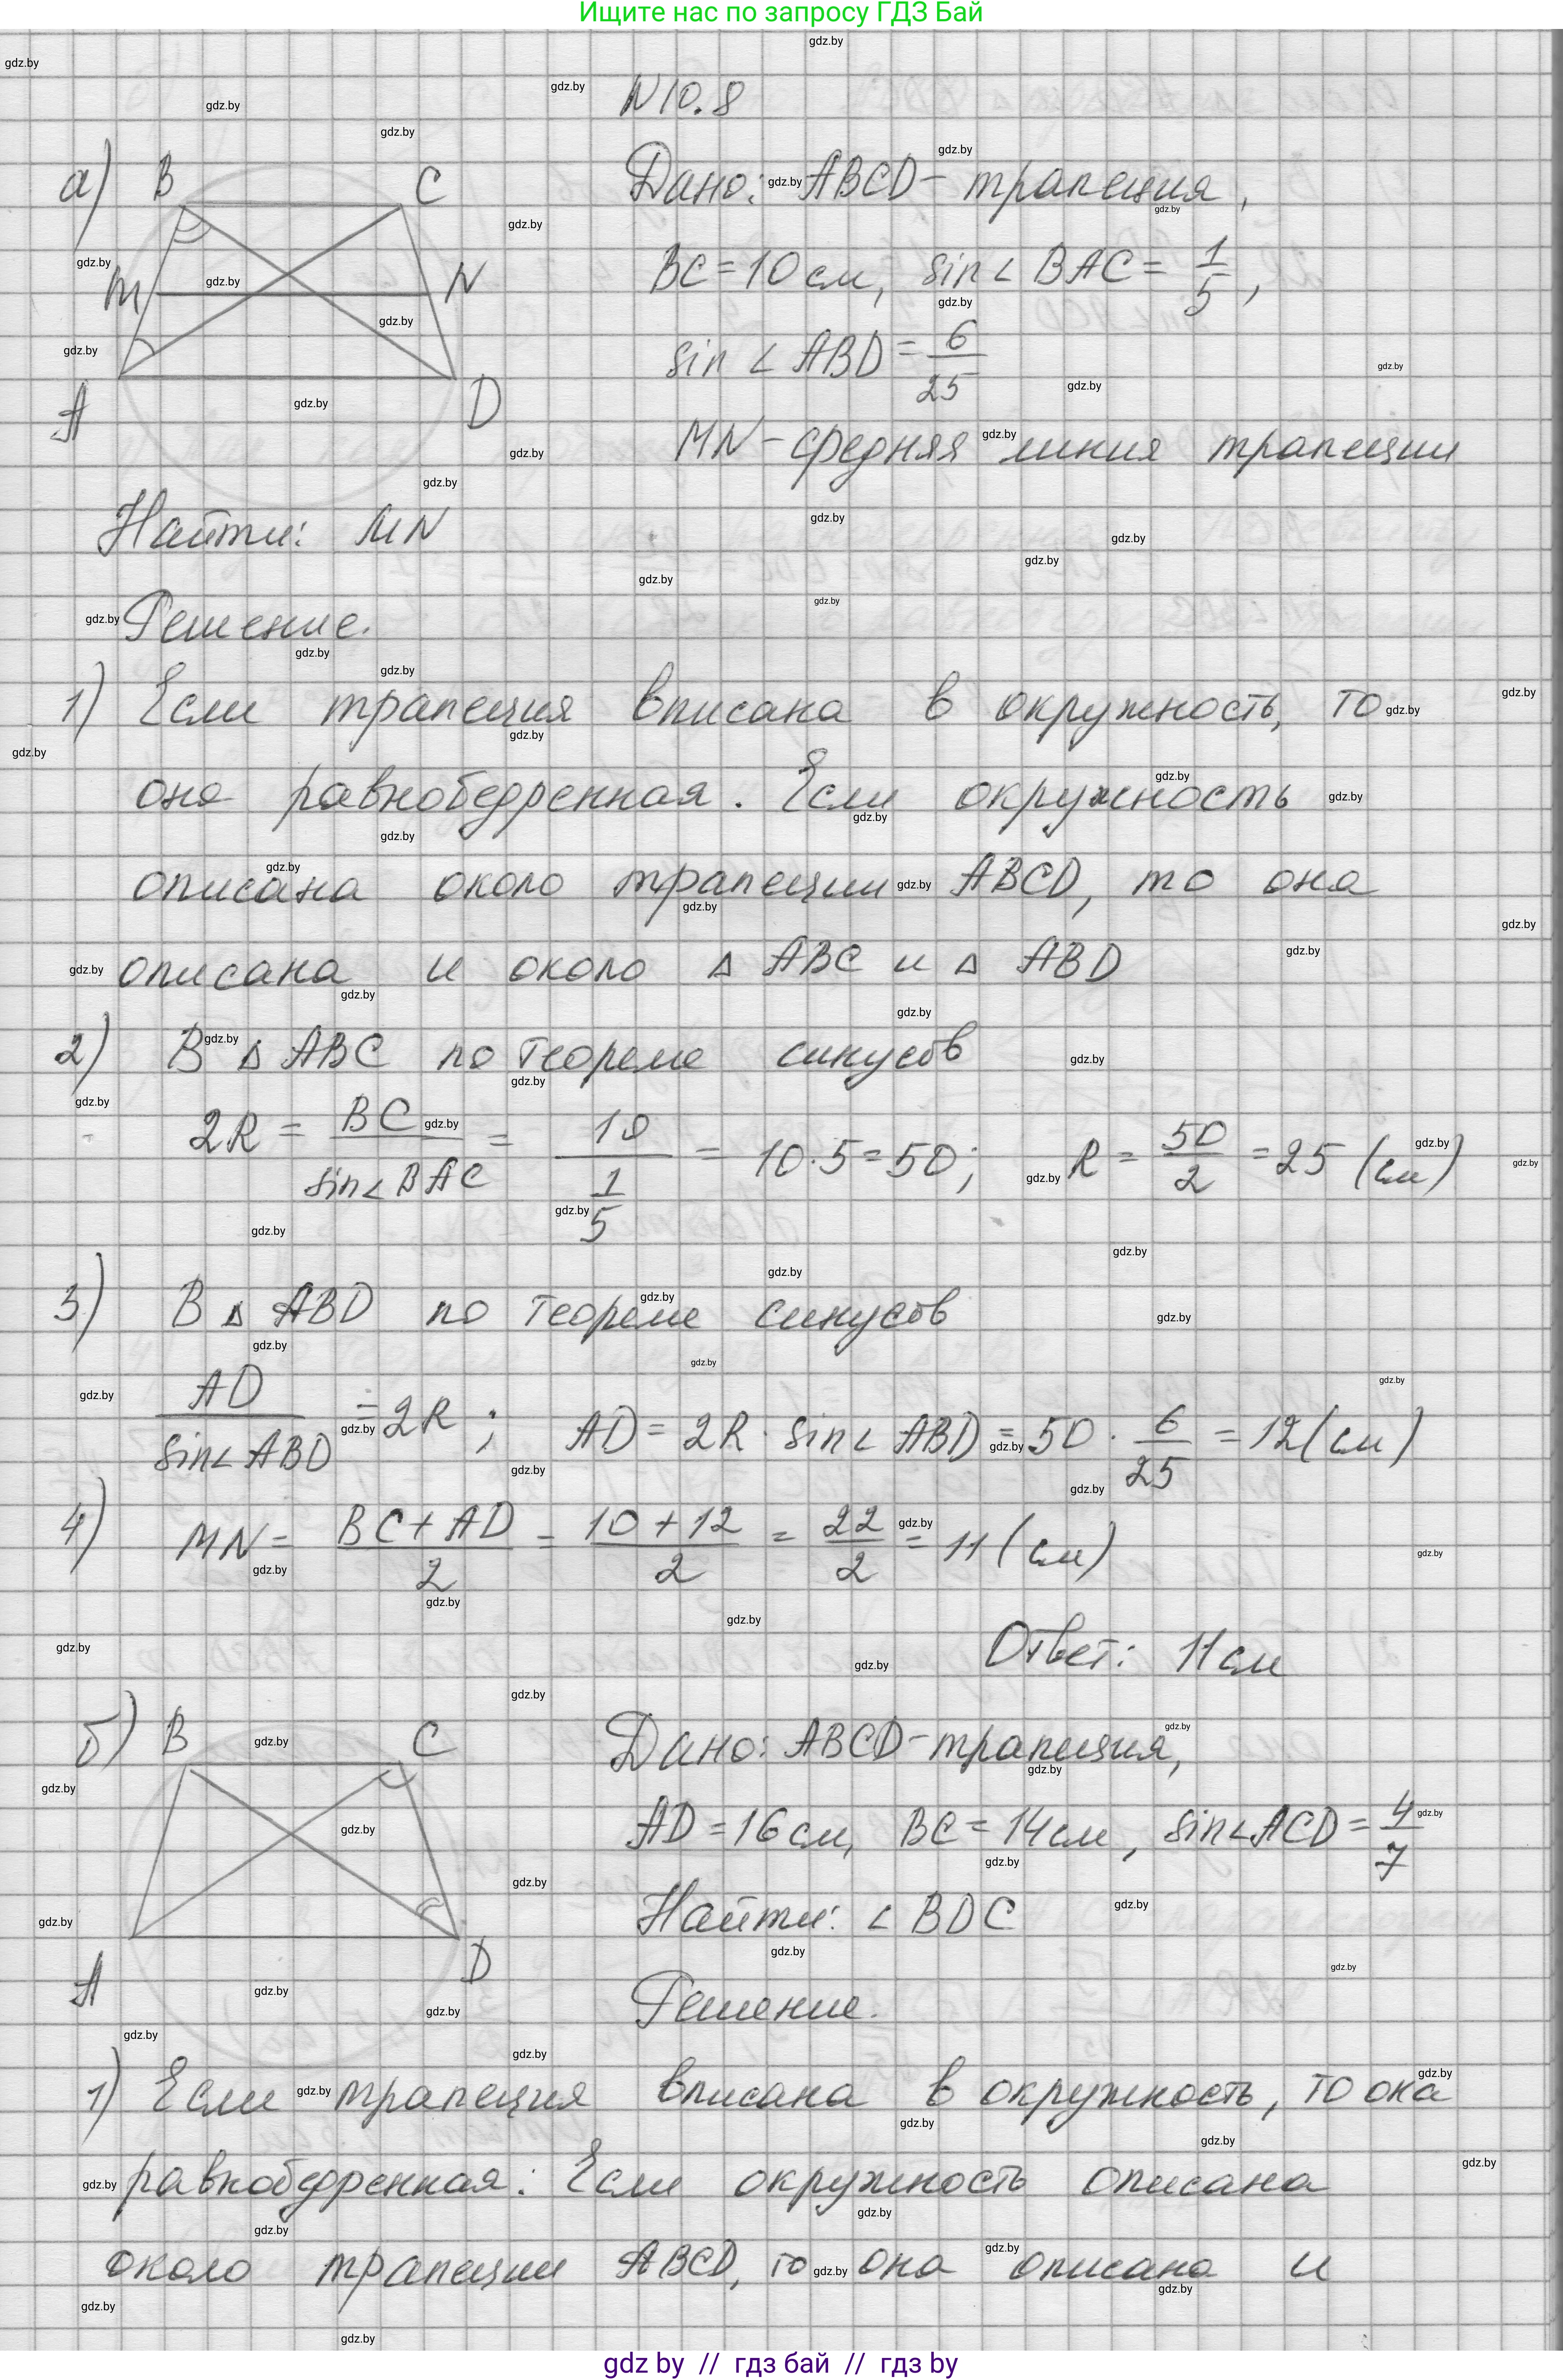 Ищите нас по запросу ГДЗ Бай
N 10.8
а) B C
M N
A D
Дано: ABCD - трапеция,
BC = 10 см, sin∠BAC = 1/5,
sin∠ABD = 6/25
MN - средняя линия трапеции
Найти: MN
Решение.
1) Если трапеция вписана в окружность, то
она равнобедренная. Если окружность
описана около трапеции ABCD, то она
описана и около Δ ABC и Δ ABD
2) В Δ ABC по теореме синусов
2R = BC/sin∠BAC = 10/(1/5) = 10·5 = 50; R = 50/2 = 25 (см)
3) В Δ ABD по теореме синусов
AD/sin∠ABD = 2R; AD = 2R · sin∠ABD = 50 · 6/25 = 12 (см)
4) MN = (BC + AD)/2 = (10 + 12)/2 = 22/2 = 11 (см)
Ответ: 11 см
б) B C
A D
Дано: ABCD - трапеция,
AD = 16 см, BC = 14 см, sin∠ACD = 4/7
Найти: ∠BDC
Решение.
1) Если трапеция вписана в окружность, то она
равнобедренная. Если окружность описана
около трапеции ABCD, то она описана и
gdz by // гдз бай // гдз by